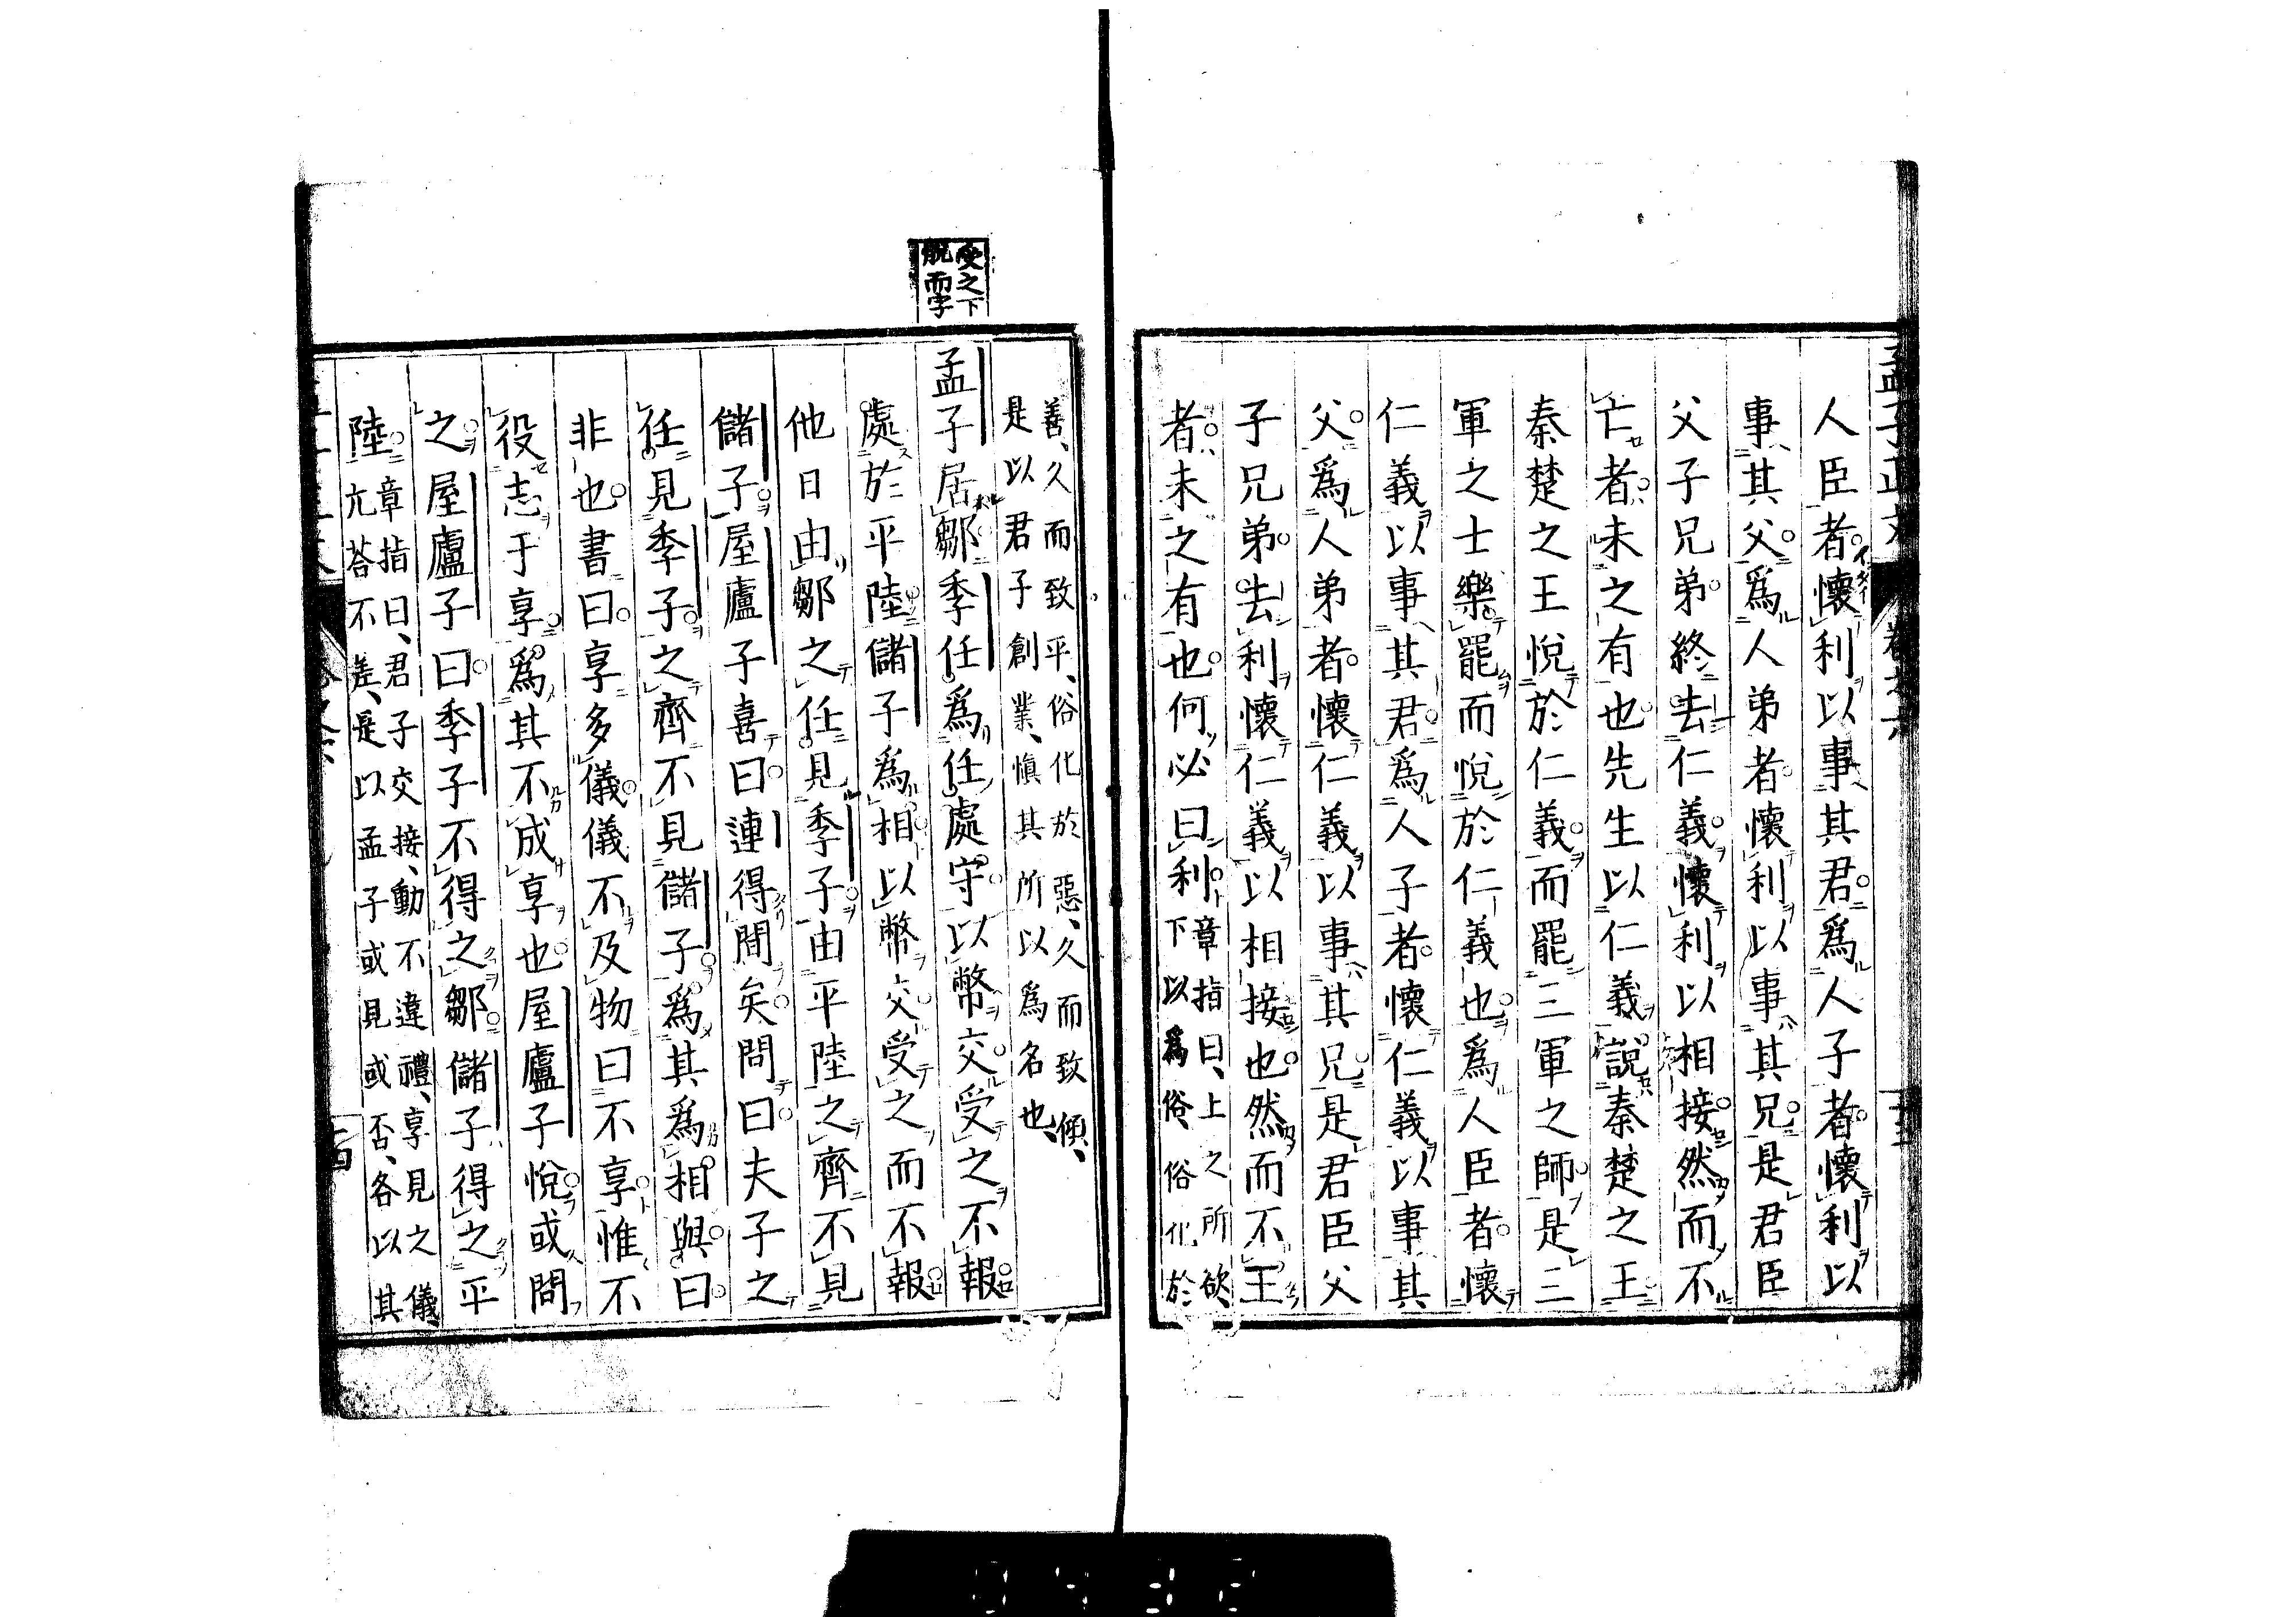 人臣者懷利以事其君爲人子者懷利以
事其父爲人弟者懷利以事其兄是君臣
父子兄弟終去仁義懷利以相接然而不
亡者未之有也先生以仁義說秦楚之王
秦楚之王悅於仁義而罷三軍之師是三
軍之士樂罷而悅於仁義也爲人臣者懷
仁義以事其君爲人子者懷仁義以事其
父爲人弟者懷仁義以事其兄是君臣父
子兄弟去利懷仁義以相接也然而不王
者未之有也何必曰利
章指曰、上之所欲、
下以爲俗、俗化於
善、久而致平、俗化於惡、久而致傾、
是以君子創業、愼其所以爲名也、
受之下
脫而字
孟子居鄒季任爲任處守以幣交受之不報
處於平陸儲子爲相以幣交受之而不報
他日由鄒之任見季子由平陸之齊不見
儲子屋廬子喜曰連得間矣問曰夫子之
任見季子之齊不見儲子爲其爲相與曰
非也書曰享多儀儀不及物曰不享惟不
役志于享爲其不成享也屋廬子悅或問
之屋廬子曰季子不得之鄒儲子得之平
陸
章指曰、君子交接、動不違禮、享見之儀、
亢荅不差、是以孟子或見或否、各以其